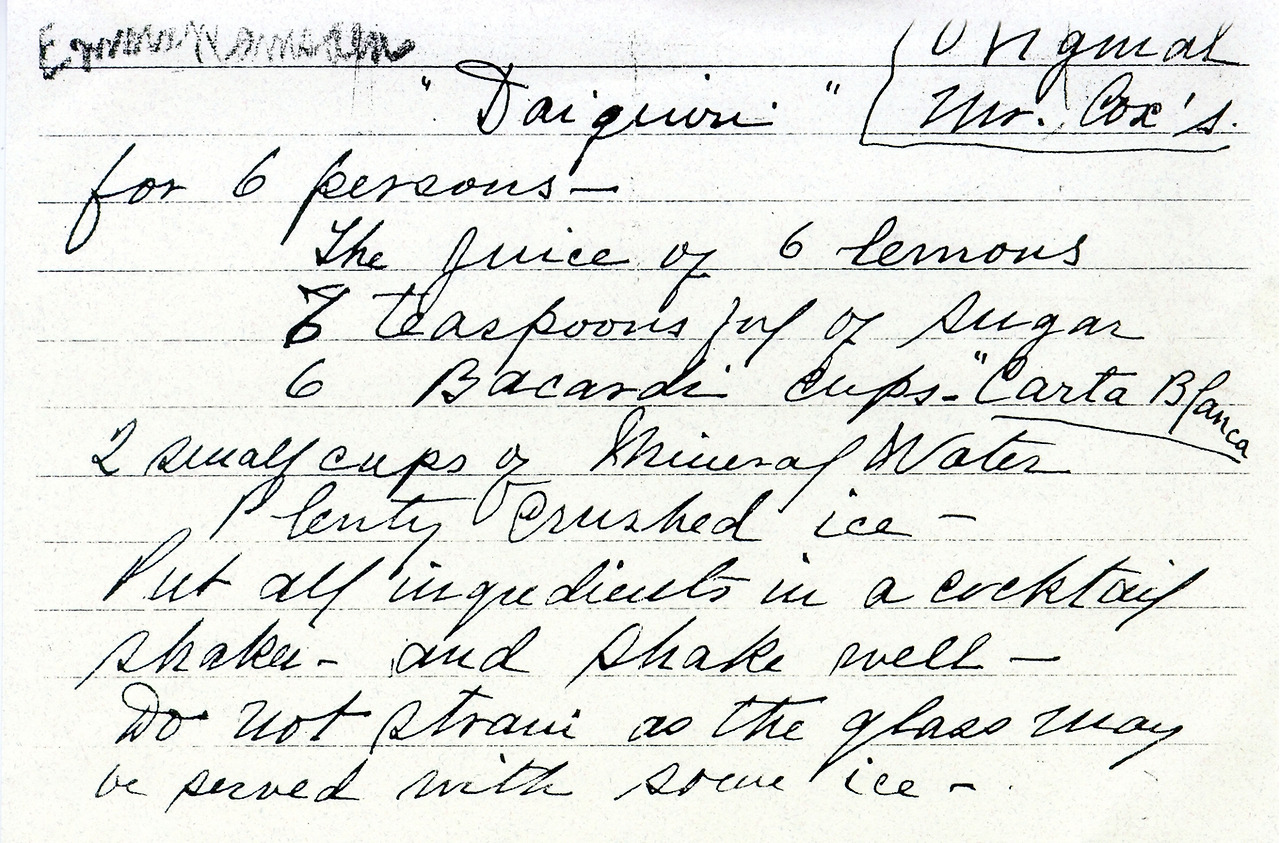 Original
"Daiquiri" Mr. Cox's.
for 6 persons—
The juice of 6 lemons
6 teaspoonsful of sugar
6 Bacardi cups-"Carta Blanca
2 small cups of Mineral Water
Plenty Crushed ice -
Put all ingredients in a cocktail
shaker - and shake well —
Do not strain as the glass may
be served with some ice -